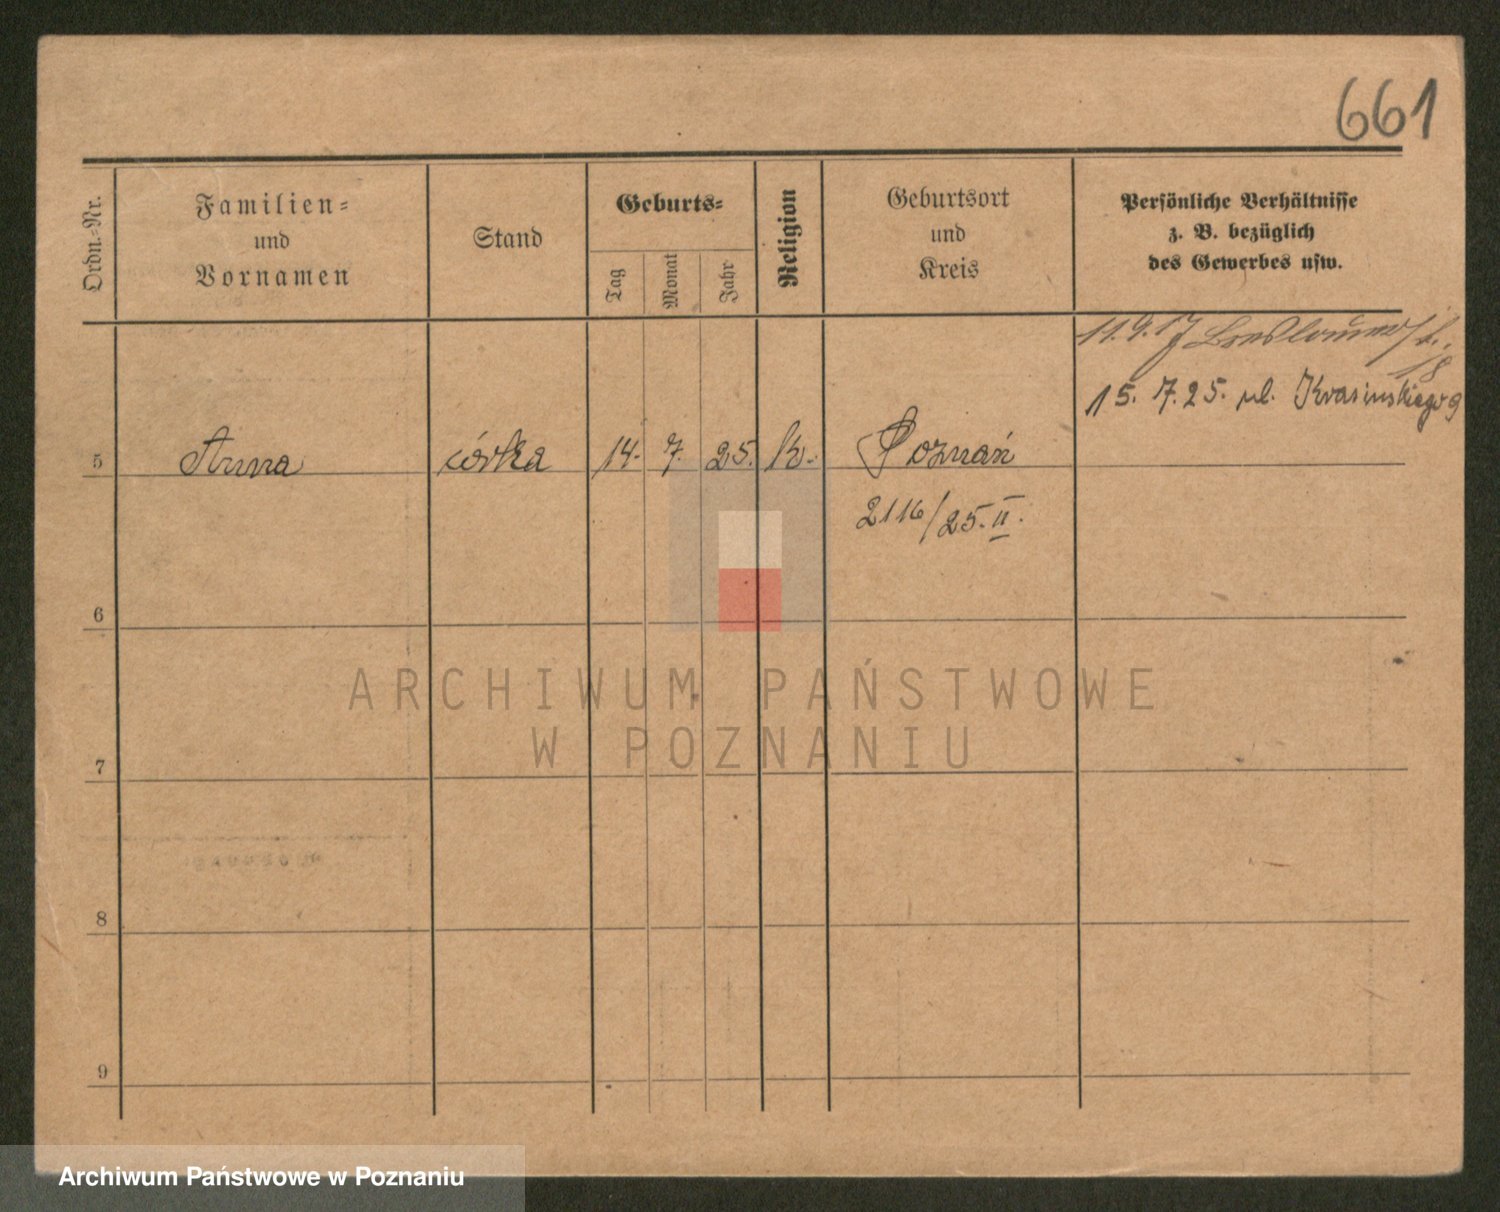 661
Ordn.-Nr.
Familien-
und
Vornamen
Stand
Geburts-
Tag
Monat
Jahr
Religion
Geburtsort
und
Kreis
Persönliche Verhältnisse
z. B. bezüglich
des Gewerbes usw.
11.9.17
18
15. 7. 25. ul. Krasińskiego 9
5 Anna córka 14. 7. 25. k. Poznań
2116/25. II.
6
7
8
9
ARCHIWUM PAŃSTWOWE
W POZNANIU
Archiwum Państwowe w Poznaniu